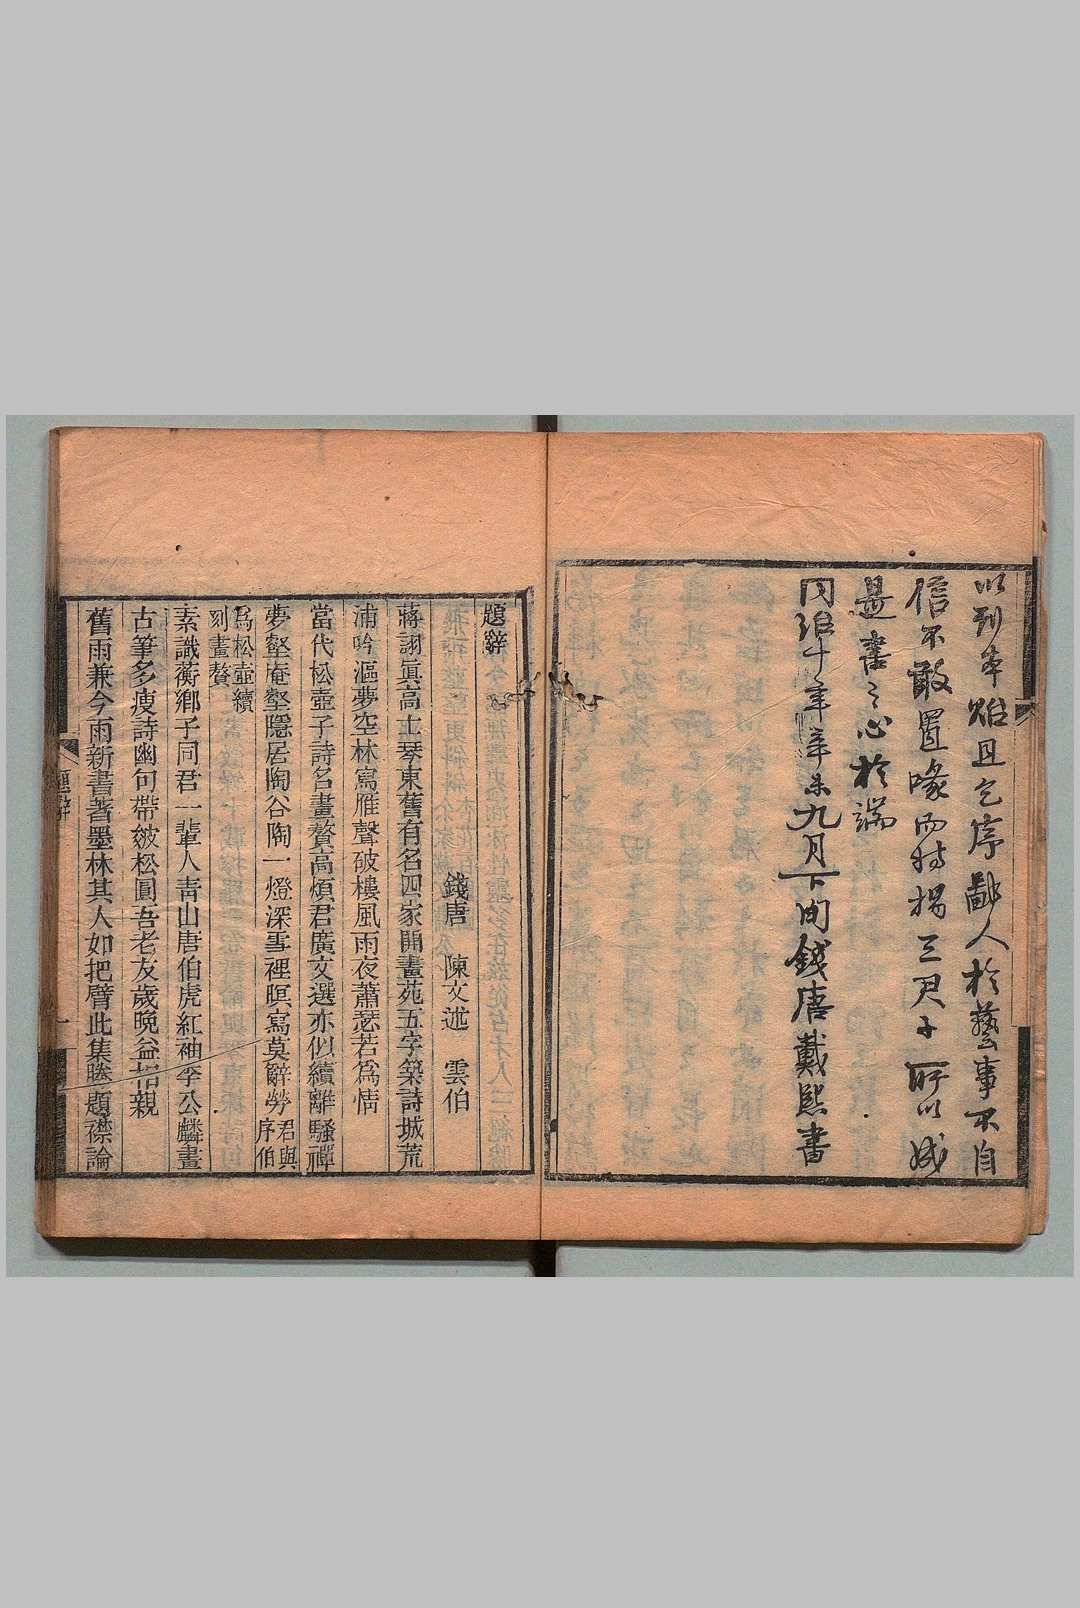 以刊本貽且乞序鄙人於藝事不自
信不敢置喙而特揭三君子所以成
是書之心於端
同治十年辛未九月下旬錢唐戴熙書
題辭
錢唐 陳文述 雲伯
蔣詡眞高士琴東舊有名四家開畫苑五字築詩城荒
浦吟漚夢空林寫雁聲破樓風雨夜蕭瑟若爲情
當代松壺子詩名畫贅高煩君廣文選亦似續離騷禪
夢壑庵壑隱居陶谷陶一燈深雪裡瞑寫莫辭勞君與序伯
爲松壺續刻畫贅
素識蘅鄉子同君一輩人靑山唐伯虎紅袖李公麟畫
古筆多瘦詩幽句帶皴松圓吾老友歲晩益相親
舊雨兼今雨新書著墨林其人如把臂此集勝題襟論
題辭
一